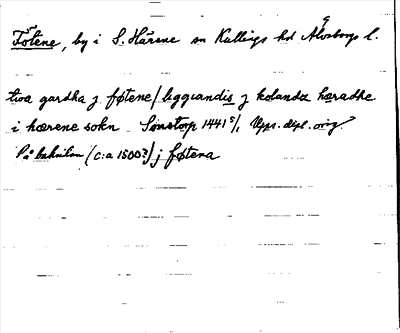 Fötene, by i S. Härene sn Kullings hd Älvsborgs l.
twa gardha j føtene / liggiandis j kolanda hæradhe
i hærene sokn Simstorp 1441 5/1 Upps. dipl. orig.
På baksidan (c:a 1500?) j føtena